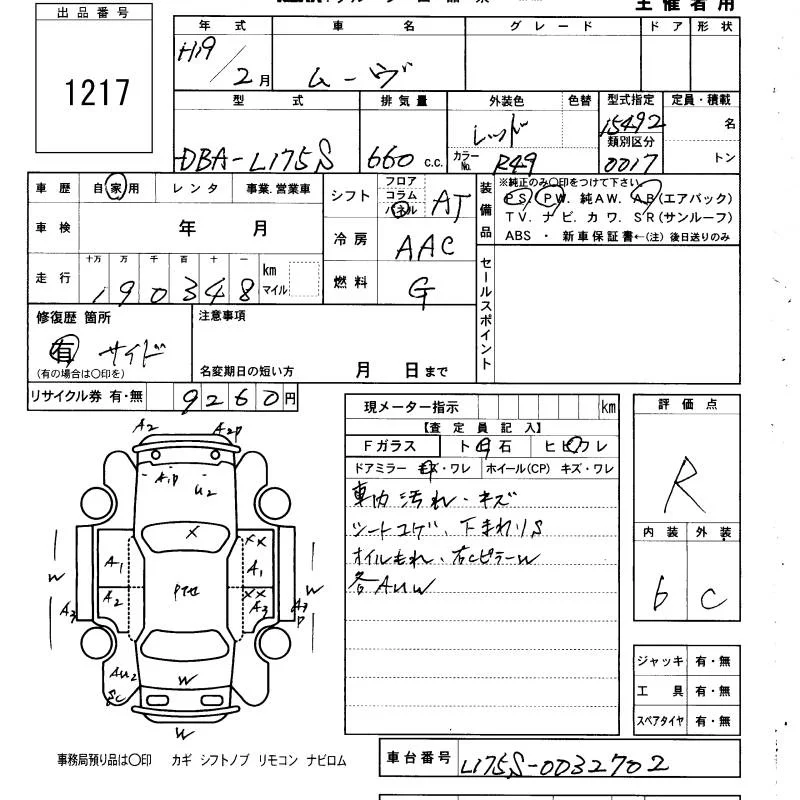 主催者用
出品番号
1217
年式 車名 グレード ドア 形状
H19/2月 ムーヴ
型式 排気量 外装色 色替 型式指定 定員・積載
DBA-L175S 660 c.c. レッド カラーNo. R49 15492 名
類別区分
0017 トン
車歴 自家用 レンタ 事業.営業車
シフト フロア コラム パネル AT
装備品
※純正のみ○印をつけて下さい
PS. PW. 純AW. AB(エアバック)
TV. ナビ. カワ. SR(サンルーフ)
ABS ・ 新車保証書←(注) 後日送りのみ
車検 年 月
冷房 AAC
走行 十万 万 千 百 十 一 km マイル
190348
燃料 G
セールスポイント
修復歴 箇所
有 サイド
(有の場合は○印を)
注意事項
名変期日の短い方 月 日まで
リサイクル券 有・無 9260円
現メーター指示 km
【査定員記入】
Fガラス ト石 ヒビワレ
ドアミラー キズ・ワレ ホイール(CP) キズ・ワレ
車内 汚れ・キズ
シートコゲ、下まわりS
オイルもれ、右Cピラーw
各AUW
評価点
R
内装 外装
6 C
ジャッキ 有・無
工具 有・無
スペアタイヤ 有・無
A2 A2P
A1P U2
X XX
A1 A1
W W
A2 XX
A3 A3 A3P
AU2
W
W
事務局預り品は○印 カギ シフトノブ リモコン ナビロム
車台番号 L175S-0032702